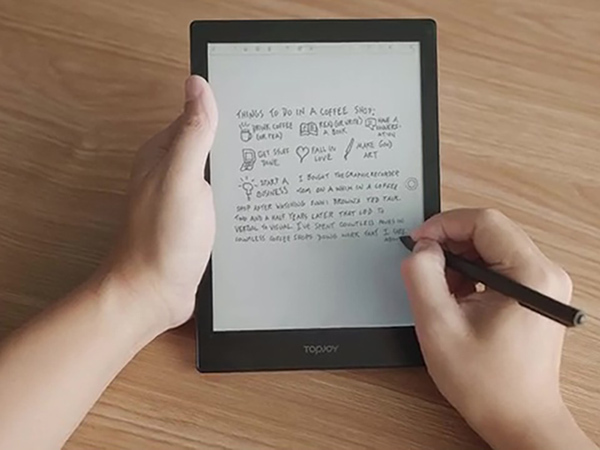 THINGS TO DO IN A COFFEE SHOP:
DRINK COFFEE
(OR TEA)
READ (OR WRITE)
A BOOK
HAVE A
CONVERS-
ATION
GET STUFF
DONE
FALL IN
LOVE
MAKE
ART
START A
BUSINESS
I BOUGHT THE
ON A WALK IN A COFFEE
SHOP AFTER WATCHING BROWN'S TED TALK
TWO AND A HALF YEARS LATER THAT LED TO
VERBAL TO VISUAL. I'VE SPENT COUNTLESS HOURS IN
COUNTLESS COFFEE SHOPS DOING WORK THAT I
TOPJOY